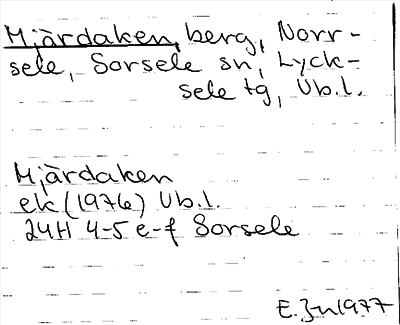 Mjärdaken, berg, Norr-
sele, Sorsele sn, Lyck-
sele tg, Vb.l.
Mjärdaken
ek (1976) Vb.l.
24H 4-5 e-f Sorsele
E. Jn 1977